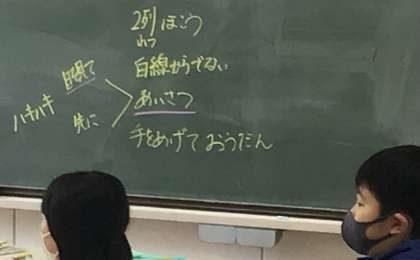 2列ほこう
れつ
白線からでない
あいさつ
手をあげて おうだん
目見て
先に
ハキハキ